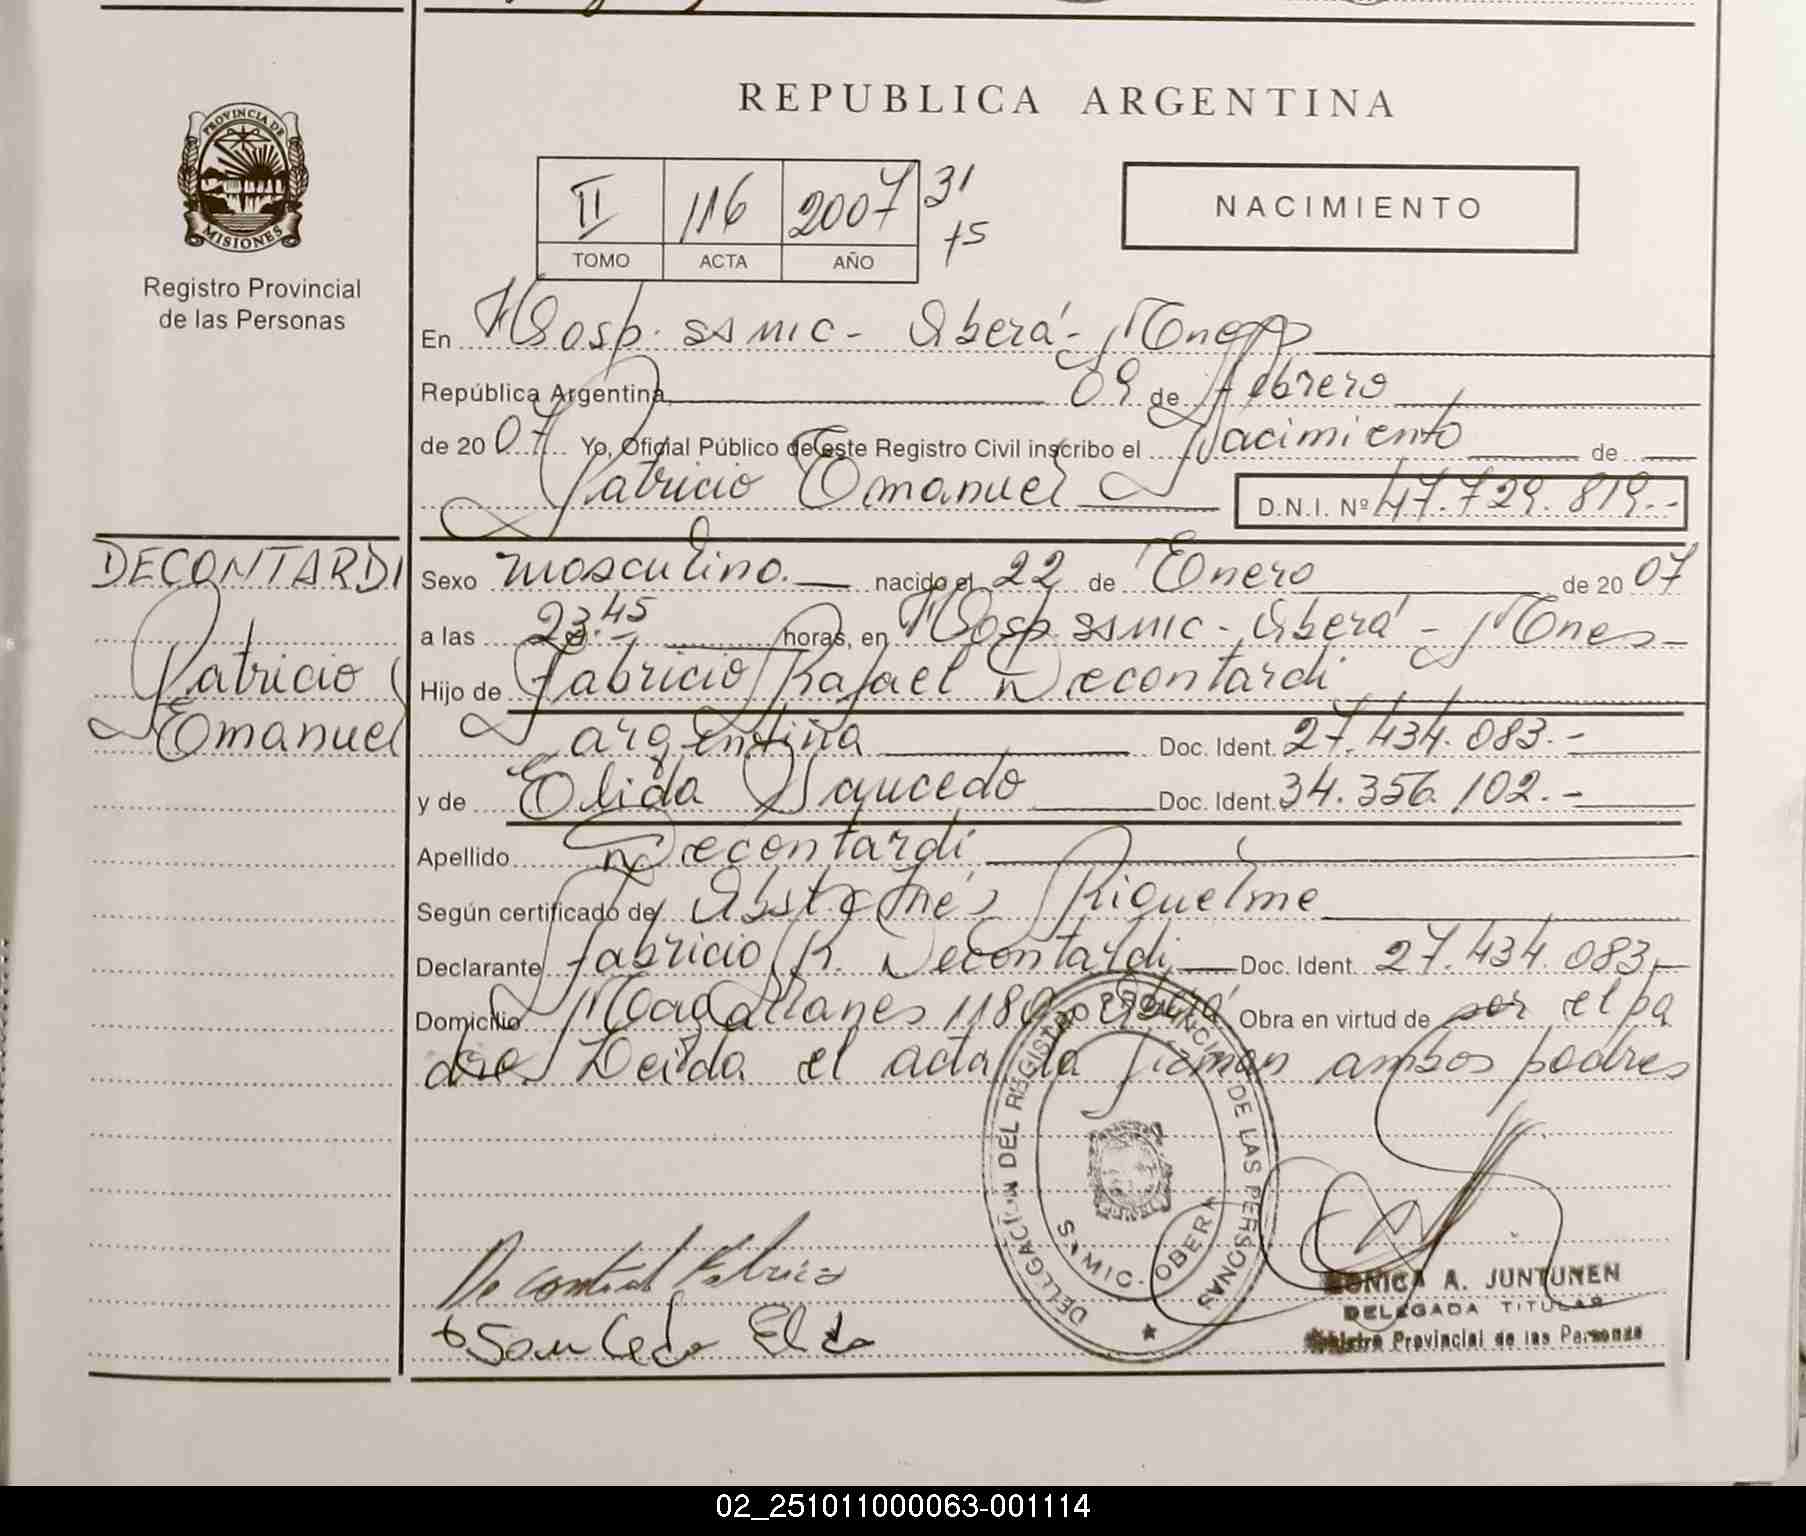 REPUBLICA ARGENTINA
PROVINCIA DE
MISIONES
Registro Provincial
de las Personas
II 116 2007 31
15
TOMO ACTA AÑO
NACIMIENTO
En Hosp. SAMIC - Oberá - Mnes
República Argentina 09 de Febrero
de 2007 Yo, Oficial Público de este Registro Civil inscribo el Nacimiento de
Patricio Emanuel D.N.I. Nº 47.729.819.-
DECONTARDI
Patricio
Emanuel
Sexo masculino. nacido el 22 de Enero de 2007
a las 23.45 horas, en Hosp. SAMIC - Oberá - Mnes -
Hijo de Fabricio Rafael Decontardi
argentina Doc. Ident. 27.434.083.-
y de Elida Saucedo Doc. Ident. 34.356.102.-
Apellido Decontardi
Según certificado de Obst. Inés Riquelme
Declarante Fabricio R. Decontardi Doc. Ident. 27.434.083.-
Domicilio Magallanes 1180 Oberá Obra en virtud de ser el pa
dre Leida el acta la firman ambos padres
DELEGACION DEL REGISTRO PROVINCIAL DE LAS PERSONAS
SAMIC - OBERA
Decontardi Fabricio
Saucedo Elida
MONICA A. JUNTUNEN
DELEGADA TITULAR
Registro Provincial de las Personas
02_251011000063-001114